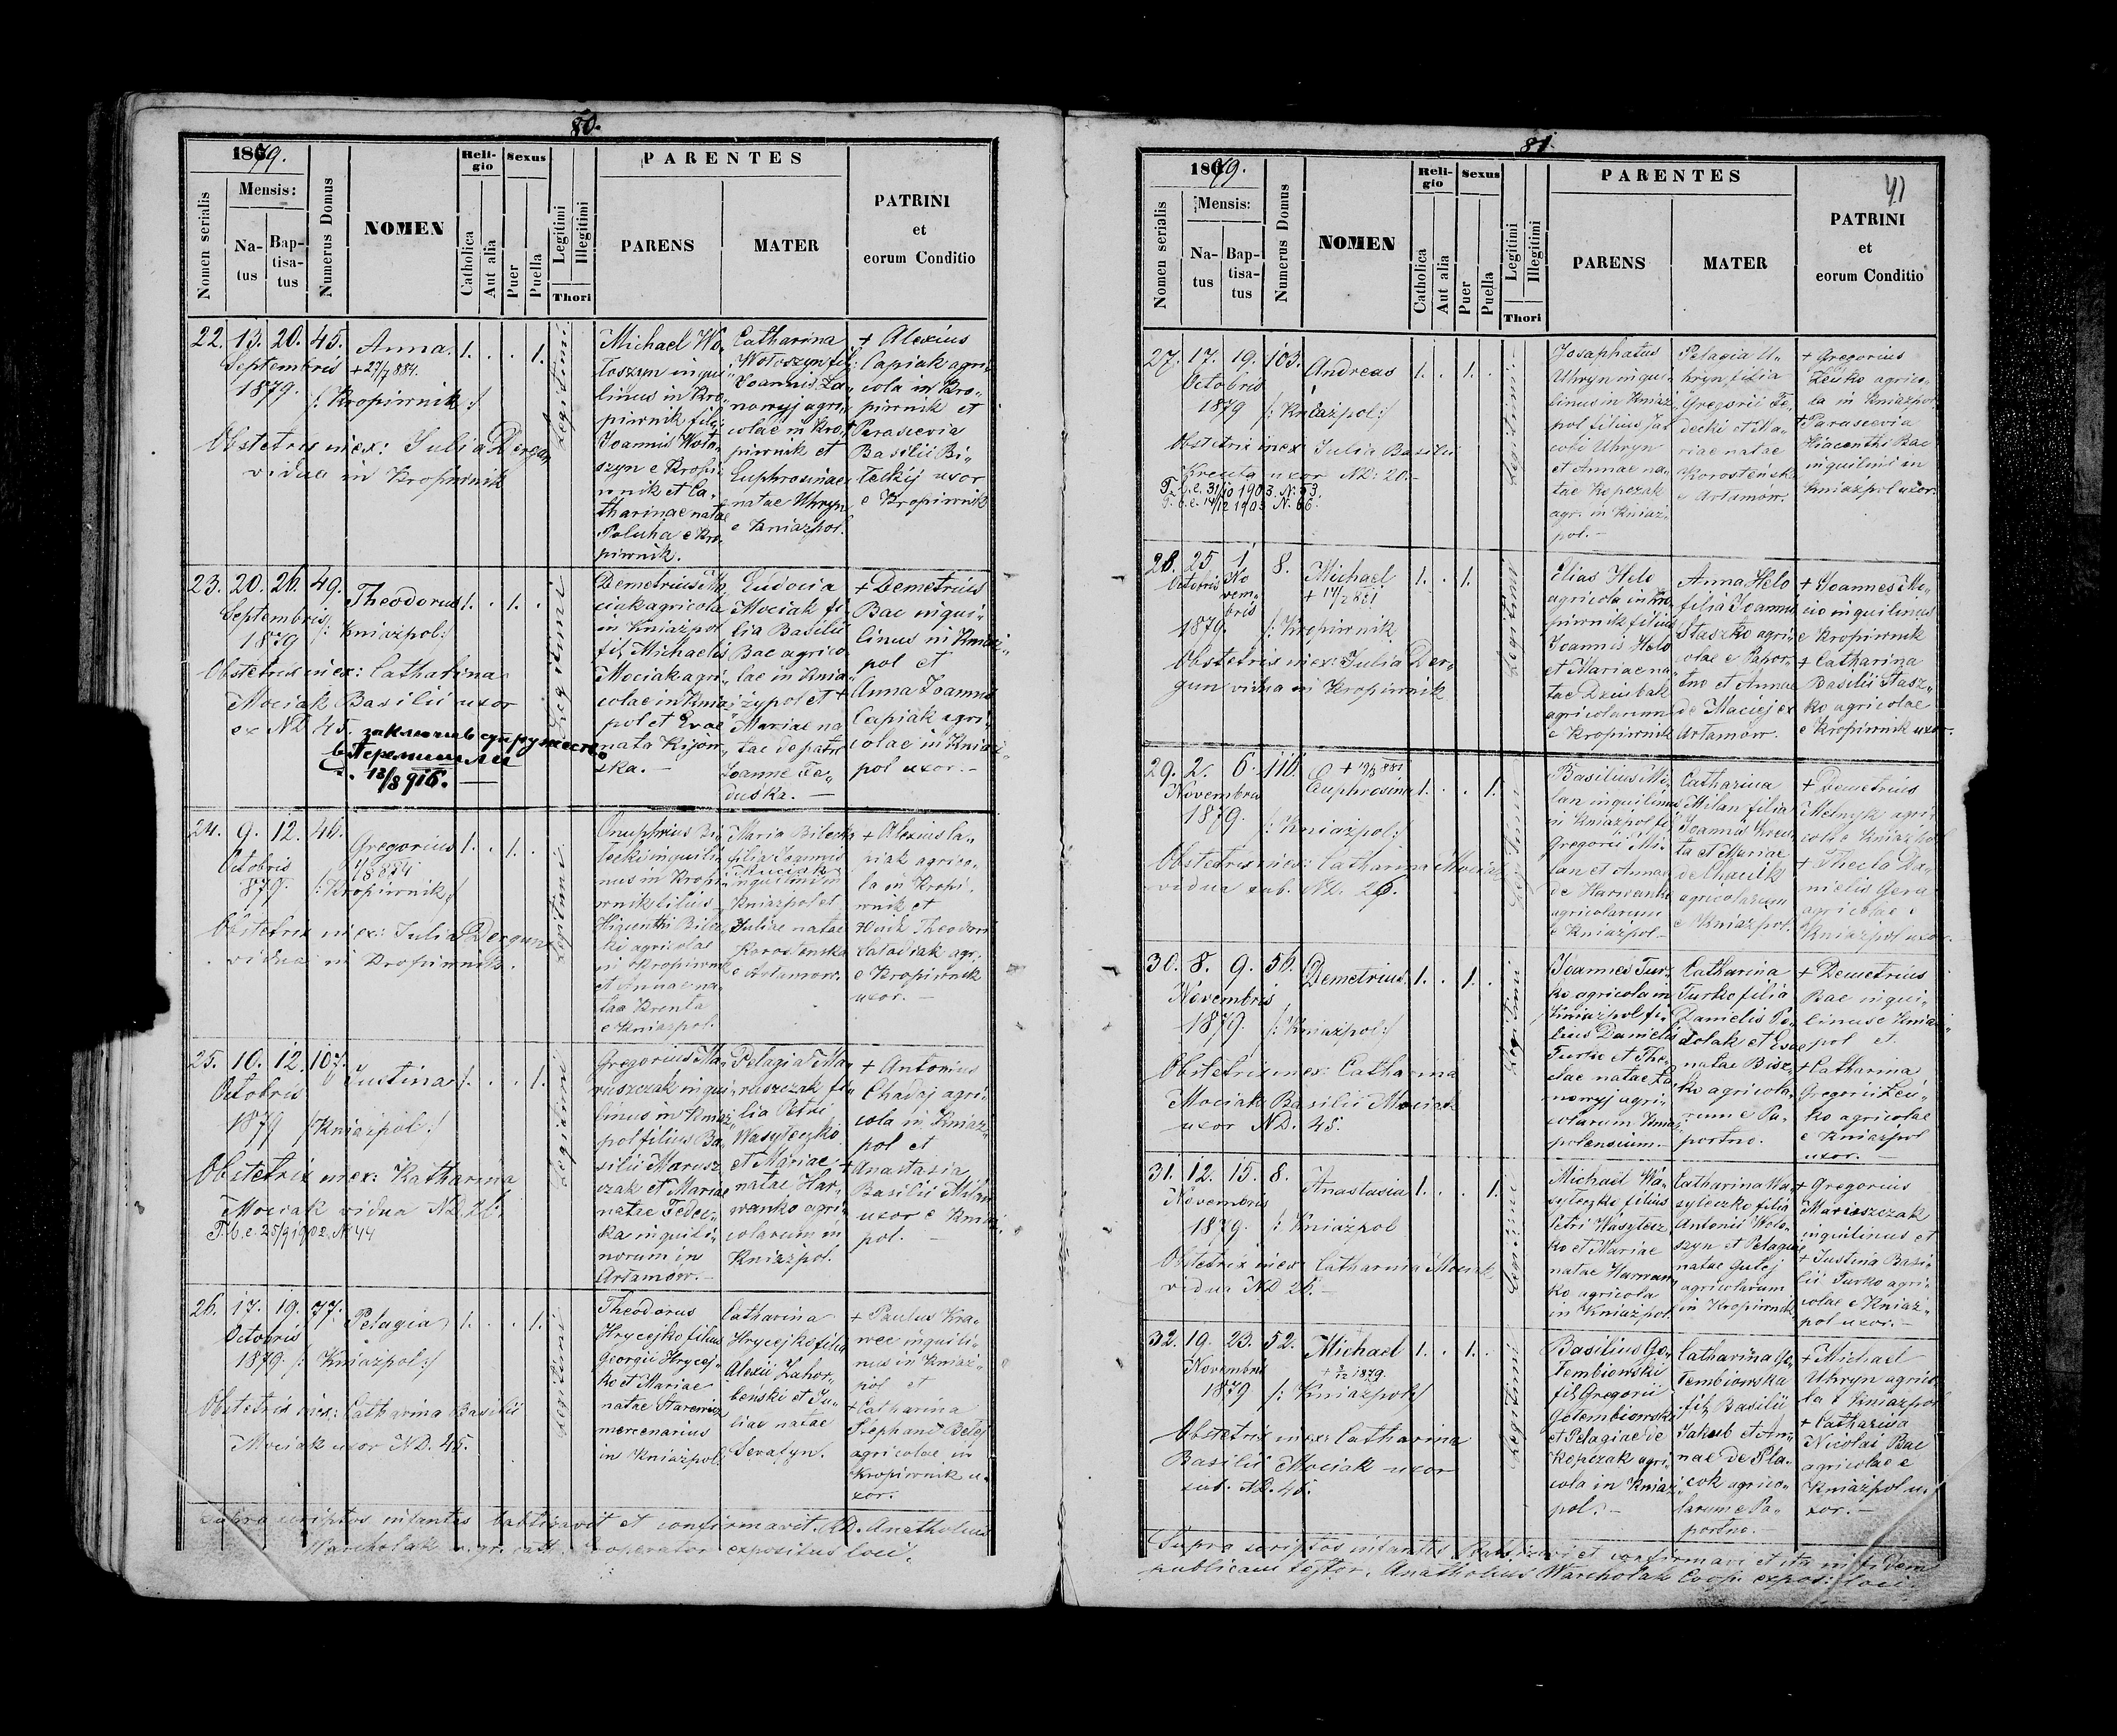 80.
1879.
Nomen serialis
Mensis:
Natus
Baptisatus
Numerus Domus
NOMEN
Religio
Catholica
Aut alia
Sexus
Puer
Puella
Legitimi
Illegitimi
Thori
PARENTES
PARENS
MATER
PATRINI
et
eorum Conditio
22. 13. 20. 45. Anna 1. . . 1.
Septembris + 27/7 884.
1879. /: Kropiwnik :/
Obstetrix inex: Julia Dergun
vidua in Kropiwnik
Legitimi
Michael Wo„
łoszyn inqui„
linus in Kro„
piwnik fil:
Joannis Woło„
szyn e Kropi„
wnik et Ca„
tharinae natae
Poluha e Kro„
piwnik.
Catharina
Wołoszyn fil:
Joannis Za„
norryj agri„
colae in Kro„
piwnik et
Euphrosinae
natae Uhryn
e Kniazpol.
+ Alexius
Capiak agri„
cola in Kro„
piwnik et
+ Parascevia
Basilii Bi„
łeckij uxor
e Kropiwnik
23. 20. 26. 49. Theodorus 1. . 1. .
Septembris
1879 /: Kniazpol :/
Obstetrix inex: Catharina
Mociak Basilii uxor
ex ND 45.
13/8 916.
Legitimi
Demetrius Mo„
ciak agricola
in Kniazpol
fil: Michaelis
Mociak agri„
colae in Kniaz„
pol et Evae
nata Kijow„
ska.
Eudocia
Mociak fi„
lia Basilii
Bac agrico„
lae in Knia„
żypol et
Mariae na„
tae de patre
Joanne Fe„
duska.
+ Demetrius
Bac inqui„
linus in Kniaz„
pol et
+ Anna Joannis
Capiak agri„
colae in Kniaz„
pol uxor.
24. 9. 12. 46. Gregorius 1. . 1. .
Octobris
1879. /: Kropiwnik :/
Obstetrix inex: Julia Dergun
vidua in Kropiwnik.
Legitimi
Onuphrius Bi„
łecki inquili„
nus in Kropi„
wnik filius
Hiacinthi Bilec„
ki agricolae
in Kropiwnik
et Annae na„
tae Krenta
e Kniazpol.
Maria Bilecka
filia Joannis
inquilini in
Kniazpol et
Juliae natae
Korosteńska
e Artamow.
+ Alexius Ca„
piak agrico„
la in Kropi„
wnik et
Theodori
agr.
e Kropiwnik
uxor.
25. 10. 12. 107. Justina 1. . . 1.
Octobris
1879 /: Kniazpol :/
Obstetrix inex: Katharina
Mociak vidua ND 26.
T. b. e. 25/9 1902. N 44
Legitimi
Gregorius Ma„
ruszczak inqui„
linus in Kniaz„
pol filius Ba„
silii Marusz„
czak et Mariae
natae Fedec„
ka inquili„
norum in
Artamów.
Pelagia Ma„
ruszczak fi„
lia Petri
Wasyleczko
et Mariae
natae Har„
wanko agri„
colarum in
Kniazpol.
+ Antonius
Chadaj agri„
cola in Kniaz„
pol et
+ Anastasia
Basilii Milan
uxor e Kniaz„
pol.
26. 17. 19. 77. Pelagia 1. . . 1.
Octobris
1879. /: Kniazpol :/
Obstetrix inex: Catharina Basilii
Mociak uxor ND. 45.
Legitimi
Theodorus
Hrycejko filius
Georgii Hrycej„
ko et Mariae
natae Starewicz
mercenarius
in Kniazpol.
Catharina
Hrycejko filia
Alexii Zahor„
beński et Ju„
liae natae
Serafyn.
+ Paulus Kra„
wec inquili„
nus in Kniaz„
pol et
+ Catharina
Stephani Betej
agricolae in
Kropiwnik u„
xor.
Supra scriptos infantes baptisavit et confirmavit RD. Anatholius
Warchołak r. gr. cath. Cooperator expositus loci.
81
41
1879.
Nomen serialis
Mensis:
Natus
Baptisatus
Numerus Domus
NOMEN
Religio
Catholica
Aut alia
Sexus
Puer
Puella
Legitimi
Illegitimi
Thori
PARENTES
PARENS
MATER
PATRINI
et
eorum Conditio
27. 17. 19. 103. Andreas 1. . 1. .
Octobris
1879 /: Kniazpol :/
Obstetrix inex: Julia Basilii
Krenta uxor ND: 20.
T. b. e. 31/10 1903. N. 53.
T. b. e. 14/12 1903 N. 66.
Legitimi
Josaphatus
Uhryn inqui„
linus in Kniaz„
pol filius Ja„
cobi Uhryn
et Annae na„
tae Kopczak
agr. in Kniaz„
pol.
Pelagia U„
hryn filia
Gregorii Fe„
decki et Ma„
riae natae
Korosteńska
e Artamow.
+ Gregorius
Leśko agrico„
la in Kniazpol
+ Parascevia
Hiacinthi Bac
inquilini in
Kniazpol uxor.
28. 25. 1 8. Michael 1. . 1.
Octobris No
vem„
bris
+ 17/2 881
1879. /: Kropiwnik
Obstetrix inex: Julia Der„
gun vidua in Kropiwnik
Legitimi
Elias Helo
agricola in Kro„
piwnik filius
Joannis Helo
et Mariae na„
tae Dziubak
agricolarum
e Kropiwnik
Anna Helo
filia Joannis
Staszko agri„
colae e Papor„
tno et Annae
de Maciej ex
Artamow.
+ Joannes
inquilinus
e Kropiwnik
+ Catharina
Basilii Stasz„
ko agricolae
e Kropiwnik uxor.
29. 2. 6. 110. Euphrosina 1. . . 1.
Novembris
1879. /: Kniazpol :/
Obstetrix inex: Catharina Mociak
vidua sub. ND. 26.
Legitimi
Basilius Mi„
lan inquilinus
in Kniazpol fil:
Gregorii Mi„
lan et Annae
de Harwanko
agricolarum
e Kniazpol
Catharina
Milan filia
Joannis Kren„
ta et Mariae
de Chanik
agricolarum
e Kniazpol.
+ Demetrius
Melnyk agri„
cola e Kniazpol
+ Thecla Da„
nielis Gera
agricolae e
Kniazpol uxor.
30. 8. 9. 56. Demetrius 1. . 1. .
Novembris
1879. /: Kniazpol :/
Obstetrix inex: Catharina
Mociak Basilii Mociak
uxor ND. 45.
Legitimi
Joannes Tur„
ko agricola in
Kniazpol fi„
lius Danielis
Turko et The„
clae natae Za„
norryj agri„
colarum Kniaz„
polensium.
Catharina
Turko filia
Danielis Po„
dolak et Evae
natae Bisz„
ko agricola„
rum e Pa„
portno.
+ Demetrius
Bac inqui„
linus e Kniaz„
pol et
+ Catharina
Gregorii Leś„
ko agricolae
e Kniazpol
uxor.
31. 12. 15. 8. Anastasia 1. . . 1.
Novembris
1879. /: Kniazpol
Obstetrix inex: Catharina Mociak
vidua ND 26.
Legitimi
Michael Wa„
syleczko filius
Petri Wasylecz„
ko et Mariae
natae Harwan„
ko agricola
in Kniazpol.
Catharina Wa„
syleczko filia
Antonii Woło„
szyn et Pelagiae
natae Gulej
agricolarum
in Kropiwnik.
+ Gregorius
Maruszczak
inquilinus et
+ Justina Basi„
lii Turko agri„
colae e Kniaz„
pol uxor.
32. 19. 23. 52. Michael 1. . 1. .
Novembris + 3/12 1879.
1879 /: Kniazpol :/
Obstetrix inex: Catharina
Basilii Mociak uxor
sub. ND. 45.
Legitimi
Basilius Go„
łembiowski
fil: Gregorii
Gołembiowski
et Pelagiae de
Kopczak agri„
cola in Kniaz„
pol.
Catharina Go„
łembiowska
fil: Basilii
Jakub et An„
nae de Pla„
cok agrico„
larum e Pa„
portno.
+ Michael
Uhryn agrico„
la e Kniazpol
+ Catharina
Nicolai Bac
agricolae e
Kniazpol u„
xor.
Supra scriptos infantes baptisavi et confirmavi et ita in fidem
publicam testor. Anatholius Warchołak Coop. expos: loci